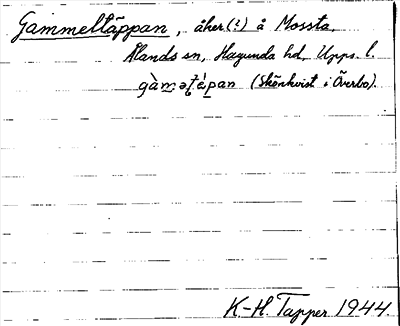 Gammeltäppan, åker(?) å Mossta,
Ålands sn, Hagunda hd, Upps. l.
gàmətépan (Skönkvist i Överbo).
K.-H. Tapper 1944.